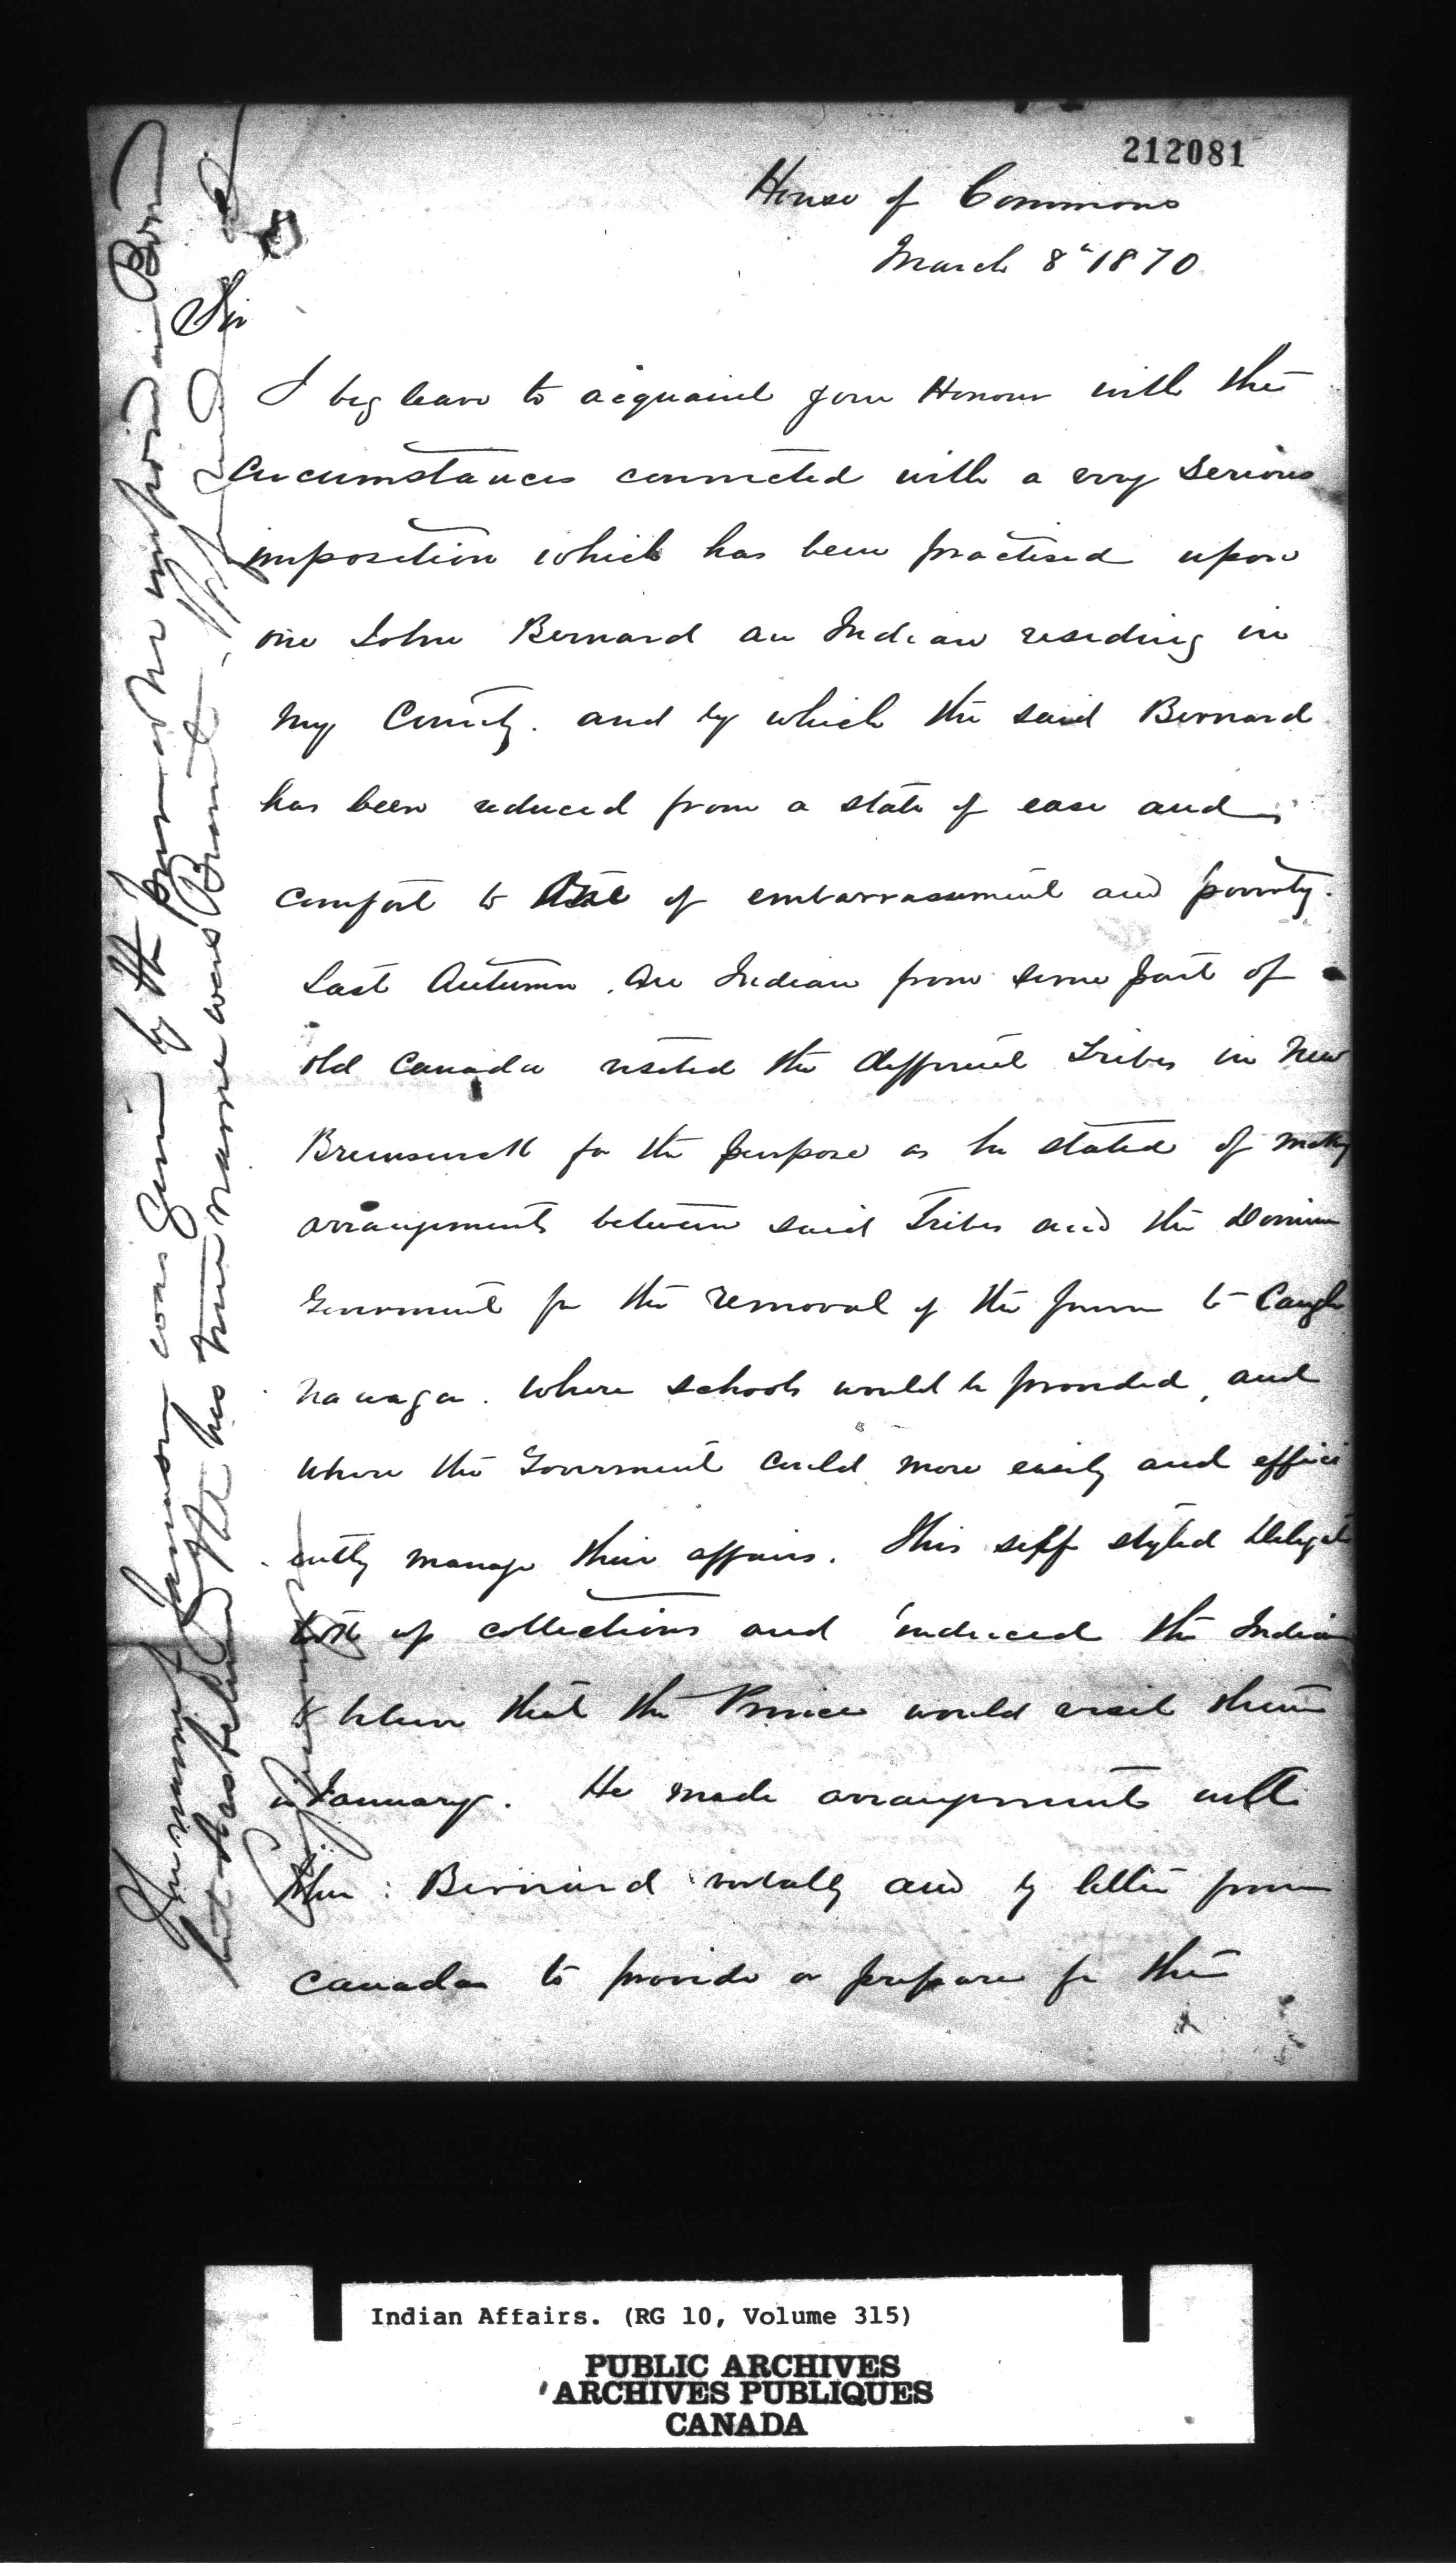 212081
House of Commons
March 8th 1870
Sir
I beg leave to acquaint your Honour with the
circumstances connected with a very serious
imposition which has been practised upon
one John Bernard an Indian residing in
my County. and by which the said Bernard
has been reduced from a state of ease and
comfort to one of embarrassment and poverty.
Last Autumn. An Indian from some part of
old Canada visited the different Tribes in New
Brunswick for the purpose as he stated of making
arrangements between said Tribes and the Dominion
Government for the removal of the former to Caugh
nawaga. where schools would be provided, and
where the Government could more easily and effici
ently manage their affairs. This self styled Delegate
took up collections and induced the Indians
to believe that the Prince would visit them
in January. He made arrangements with
John: Bernard verbally and by letter from
Canada to provide or prepare for the
The name was given by the
but has his true name was
Indian Affairs. (RG 10, Volume 315)
PUBLIC ARCHIVES
ARCHIVES PUBLIQUES
CANADA